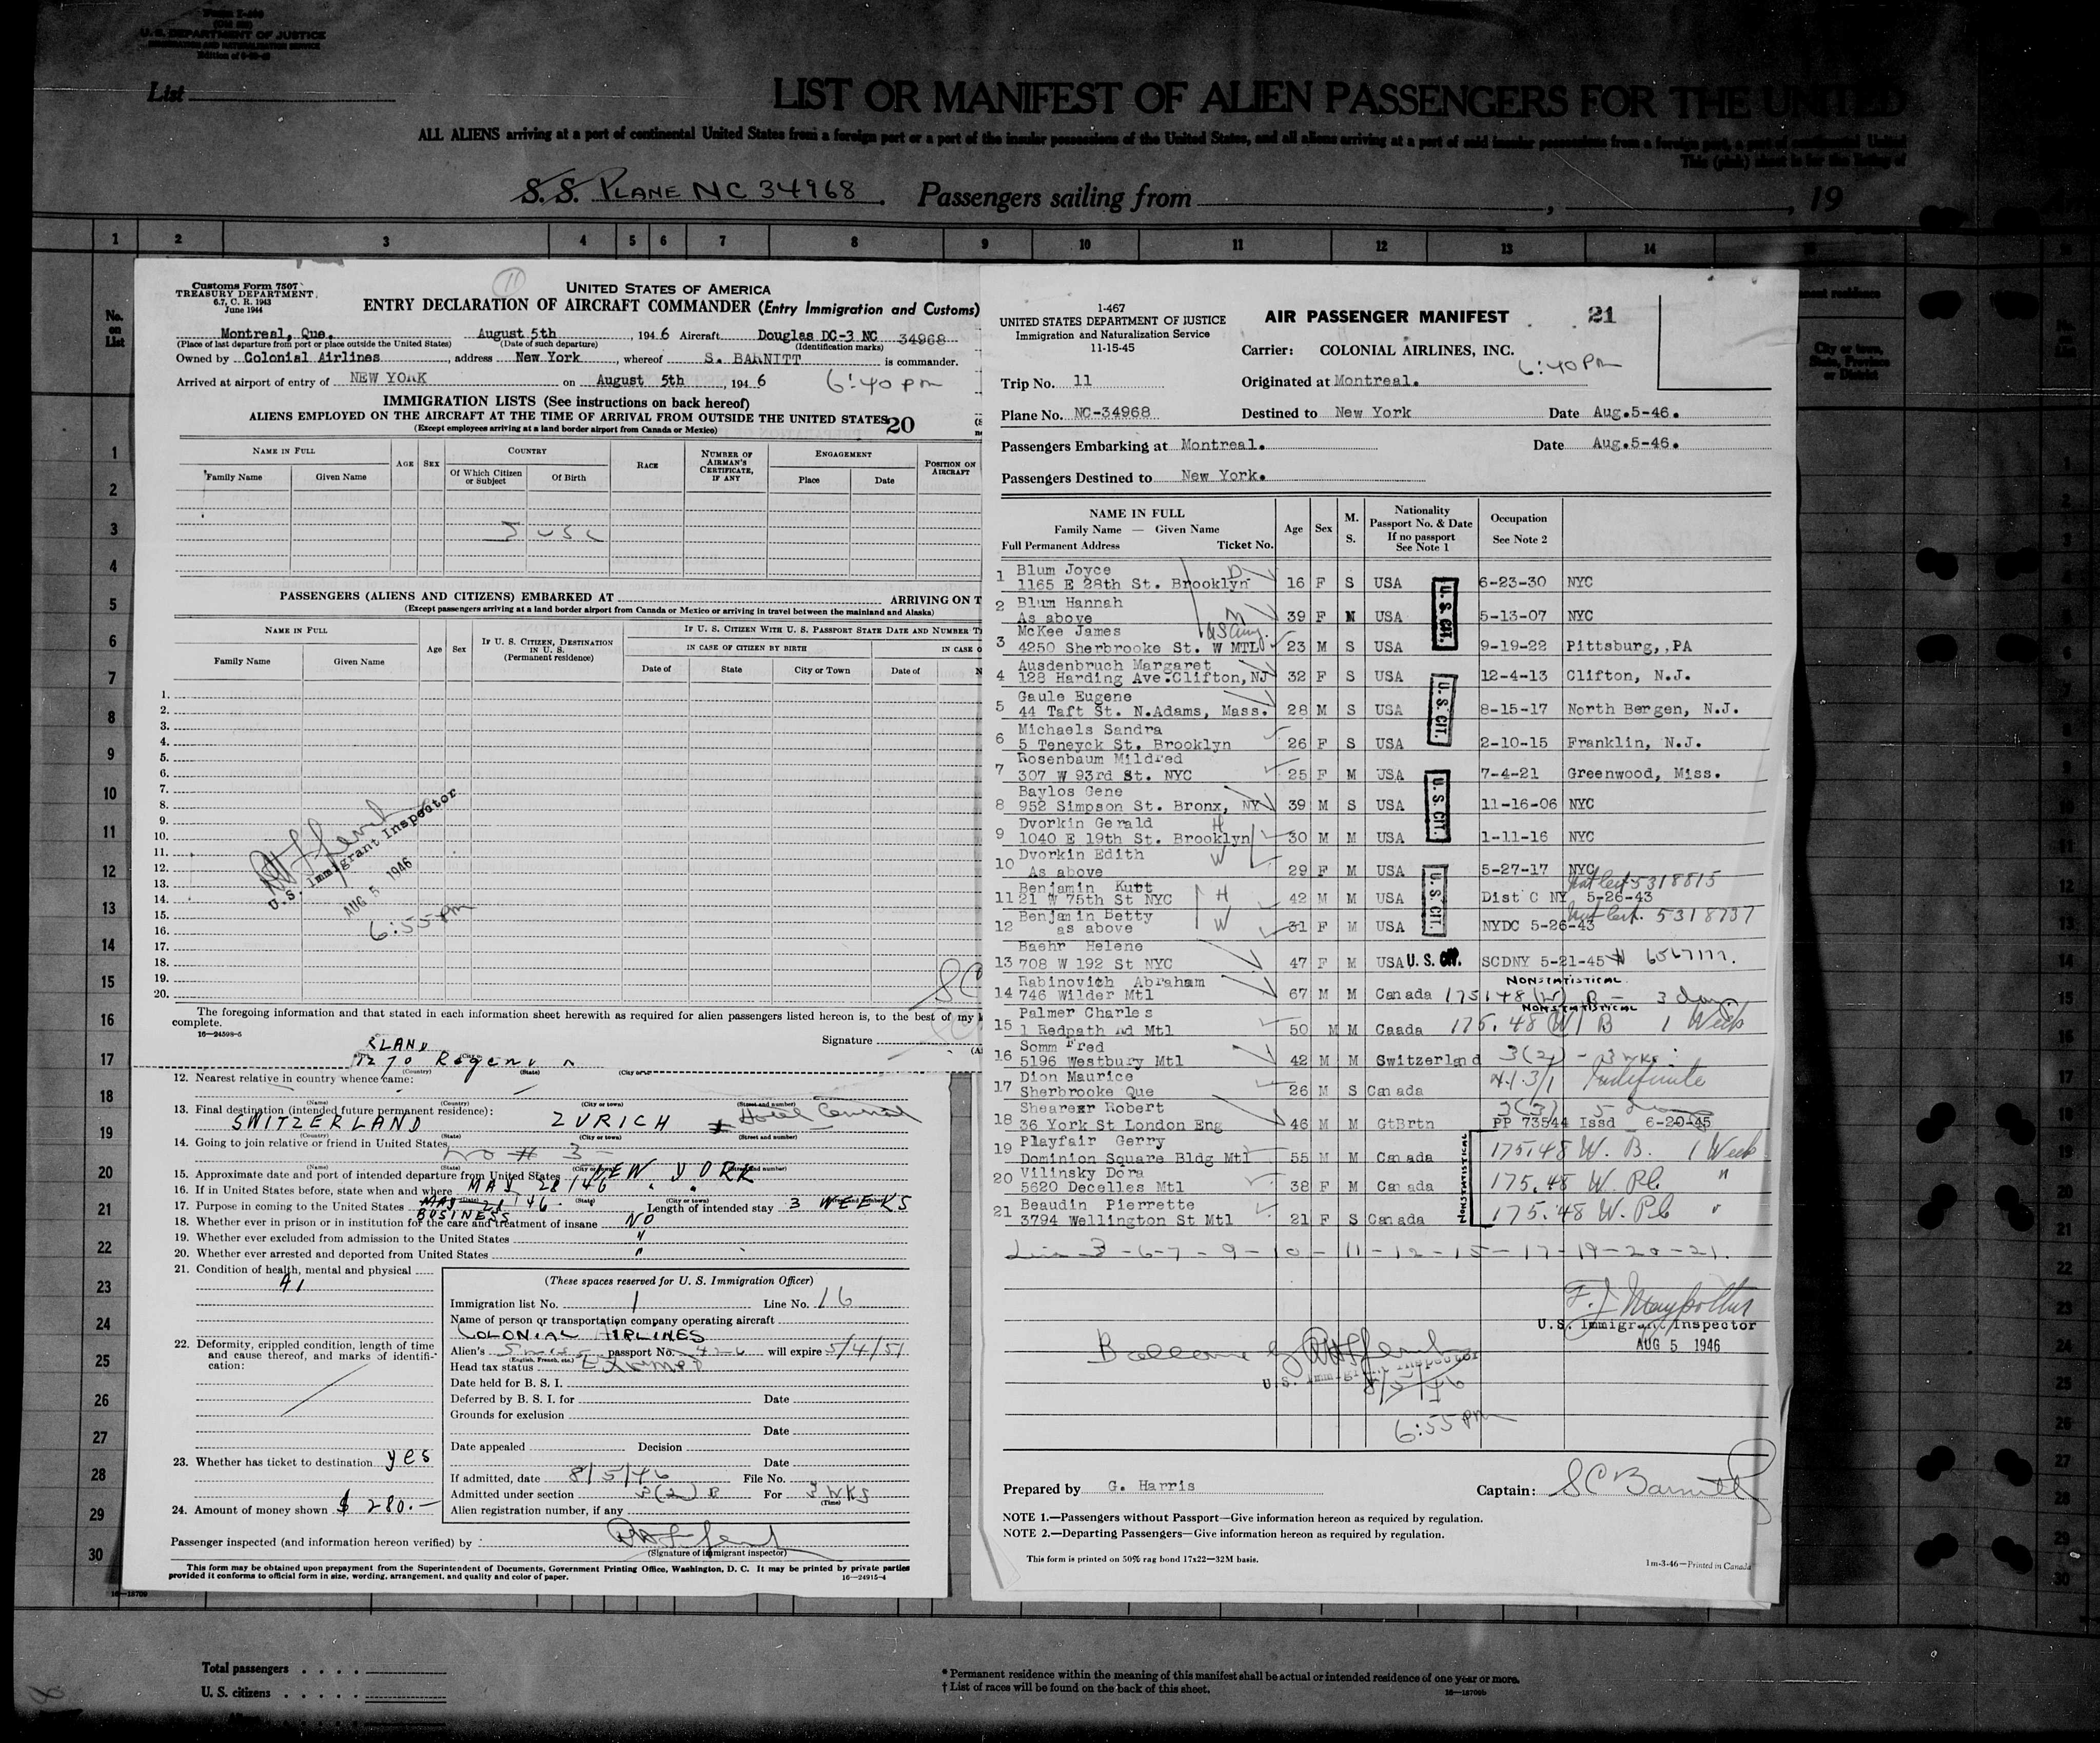 Form I-466
U. S. DEPARTMENT OF JUSTICE
IMMIGRATION AND NATURALIZATION SERVICE
List
LIST OR MANIFEST OF ALIEN PASSENGERS FOR THE UNITED
ALL ALIENS arriving at a port of continental United States from a foreign port or a port of the insular possessions of the United States, and all aliens arriving at a port of said insular possessions from a foreign port, a port of continental United
This (pink) sheet is for the listing of
S.S. PLANE NC 34968 . Passengers sailing from , , 19
1 2 3 4 5 6 7 8 9 10 11 12 13 14
No. on List
Customs Form 7507
TREASURY DEPARTMENT
6.7, C. R. 1943
June 1944
11
UNITED STATES OF AMERICA
ENTRY DECLARATION OF AIRCRAFT COMMANDER (Entry Immigration and Customs)
Montreal, Que. August 5th , 194 6 Aircraft Douglas DC-3 NC 34968
(Place of last departure from port or place outside the United States) (Date of such departure) (Identification marks)
Owned by Colonial Airlines , address New York , whereof S. BARNITT is commander.
Arrived at airport of entry of NEW YORK on August 5th , 194 6 6:40 pm
IMMIGRATION LISTS (See instructions on back hereof)
ALIENS EMPLOYED ON THE AIRCRAFT AT THE TIME OF ARRIVAL FROM OUTSIDE THE UNITED STATES 20
(Except employees arriving at a land border airport from Canada or Mexico)
NAME IN FULL AGE SEX COUNTRY RACE NUMBER OF AIRMAN'S CERTIFICATE, IF ANY ENGAGEMENT POSITION ON AIRCRAFT
Family Name Given Name Of Which Citizen or Subject Of Birth Place Date
3 USC
PASSENGERS (ALIENS AND CITIZENS) EMBARKED AT ARRIVING ON T
(Except passengers arriving at a land border airport from Canada or Mexico or arriving in travel between the mainland and Alaska)
NAME IN FULL Age Sex IF U. S. CITIZEN, DESTINATION IN U. S. (Permanent residence) IF U. S. CITIZEN WITH U. S. PASSPORT STATE DATE AND NUMBER T
IN CASE OF CITIZEN BY BIRTH IN CASE O
Family Name Given Name Date of State City or Town Date of N
1.
2.
3.
4.
5.
6.
7.
8.
9.
10.
11.
12.
13.
14.
15.
16.
17.
18.
19.
20.
U.S. Immigrant Inspector
AUG 5 1946
6:55 pm
The foregoing information and that stated in each information sheet herewith as required for alien passengers listed hereon is, to the best of my
complete.
16—24598-5
Signature
RLAND
1270
(Country) (State) (City or
12. Nearest relative in country whence came:
(Name) (Country) (City or town) (Street and number)
13. Final destination (intended future permanent residence):
SWITZERLAND ZURICH Hotel Central
(Country) (State) (City or town) (Street and number)
14. Going to join relative or friend in United States
NO # 3
(Name) (State) (City or town) (Street and number)
15. Approximate date and port of intended departure from United States NEW YORK
16. If in United States before, state when and where MAY 28/46
(Date) (State) (City or town)
17. Purpose in coming to the United States Length of intended stay 3 WEEKS
BUSINESS
18. Whether ever in prison or in institution for the care and treatment of insane NO
19. Whether ever excluded from admission to the United States "
20. Whether ever arrested and deported from United States "
21. Condition of health, mental and physical
A1
22. Deformity, crippled condition, length of time and cause thereof, and marks of identification:
23. Whether has ticket to destination yes
24. Amount of money shown $ 280.—
(These spaces reserved for U. S. Immigration Officer)
Immigration list No. 1 Line No. 16
Name of person or transportation company operating aircraft
COLONIAL AIRLINES
Alien's Swiss passport No. will expire 5/4/51
(English, French, etc.)
Head tax status Exempt
Date held for B. S. I.
Deferred by B. S. I. for Date
Grounds for exclusion
Date
Date appealed Decision
Date
If admitted, date 8/5/46 File No.
Admitted under section 3(2) B For 3 WKS
(Time)
Alien registration number, if any
Passenger inspected (and information hereon verified) by
(Signature of immigrant inspector)
This form may be obtained upon prepayment from the Superintendent of Documents, Government Printing Office, Washington, D. C. It may be printed by private parties
provided it conforms to official form in size, wording, arrangement, and quality and color of paper.
16—24915-4
I-467
UNITED STATES DEPARTMENT OF JUSTICE
Immigration and Naturalization Service
11-15-45
AIR PASSENGER MANIFEST 21
Carrier: COLONIAL AIRLINES, INC.
6:40 Pm
Trip No. 11 Originated at Montreal.
Plane No. NC-34968 Destined to New York Date Aug.5-46.
Passengers Embarking at Montreal. Date Aug.5-46.
Passengers Destined to New York.
NAME IN FULL
Family Name — Given Name
Full Permanent Address Ticket No.
Age Sex M. S. Nationality Passport No. & Date If no passport See Note 1 Occupation See Note 2
1 Blum Joyce D
1165 E 28th St. Brooklyn 16 F S USA U. S. CIT. 6-23-30 NYC
2 Blum Hannah M
As above 39 F M USA 5-13-07 NYC
3 McKee James US Army
4250 Sherbrooke St. W MTL 23 M S USA 9-19-22 Pittsburg,,PA
4 Ausdenbruch Margaret
128 Harding Ave.Clifton,NJ 32 F S USA U. S. CIT. 12-4-13 Clifton, N.J.
5 Gaule Eugene
44 Taft St. N.Adams, Mass. 28 M S USA 8-15-17 North Bergen, N.J.
6 Michaels Sandra
5 Teneyck St. Brooklyn 26 F S USA 2-10-15 Franklin, N.J.
7 Rosenbaum Mildred
307 W 93rd St. NYC 25 F M USA U. S. CIT. 7-4-21 Greenwood, Miss.
8 Baylos Gene
952 Simpson St. Bronx, NY 39 M S USA 11-16-06 NYC
9 Dvorkin Gerald H
1040 E 19th St. Brooklyn 30 M M USA 1-11-16 NYC
10 Dvorkin Edith W
As above 29 F M USA U. S. CIT. 5-27-17 NYC
11 Benjamin Kurt H Nat Cert 5318815
21 W 75th St NYC 42 M M USA Dist C NY 5-26-43
12 Benjamin Betty W Nat Cert. 5318737
as above 31 F M USA NYDC 5-26-43
13 Baehr Helene
708 W 192 St NYC 47 F M USA U. S. CIT. SCDNY 5-21-45 #
14 Rabinovich Abraham NONSTATISTICAL
746 Wilder Mtl 67 M M Canada 175.48 (W) B — 3 days
15 Palmer Charles NONSTATISTICAL
1 Redpath Rd Mtl 50 M M Caada 175.48 (W) B 1 Week
16 Somm Fred
5196 Westbury Mtl 42 M M Switzerland 3(2) - 3 wks
17 Dion Maurice
Sherbrooke Que 26 M S Canada 4.1.3/1 Indefinite
18 Shearexr Robert 3(3)
36 York St London Eng 46 M M GtBrtn PP 73544 Issd 6-20-45
19 Playfair Gerry
Dominion Square Bldg Mtl 55 M M Canada NONSTATISTICAL 175.48 W. B. 1 Week
20 Vilinsky Dora
5620 Decelles Mtl 38 F M Canada 175.48 W. Pl. "
21 Beaudin Pierrette
3794 Wellington St Mtl 21 F S Canada 175.48 W. Pl "
Line 3 - 6-7 - 9 - 10 - 11 - 12 - 15 - 17 - 19 - 20 - 21.
U.S. Immigrant Inspector
AUG 5 1946
Balance by
U.S. Immigrant Inspector
8/5/46
6:55 pm
Prepared by G. Harris Captain: S C Barnitt
NOTE 1.—Passengers without Passport—Give information hereon as required by regulation.
NOTE 2.—Departing Passengers—Give information hereon as required by regulation.
This form is printed on 50% rag bond 17x22—32M basis. 1m-3-46—Printed in Canada
1
2
3
4
5
6
7
8
9
10
11
12
13
14
15
16
17
18
19
20
21
22
23
24
25
26
27
28
29
30
City or town, State, Province or District
Total passengers . . . .
U. S. citizens . . . . .
* Permanent residence within the meaning of this manifest shall be actual or intended residence of one year or more.
† List of races will be found on the back of this sheet.